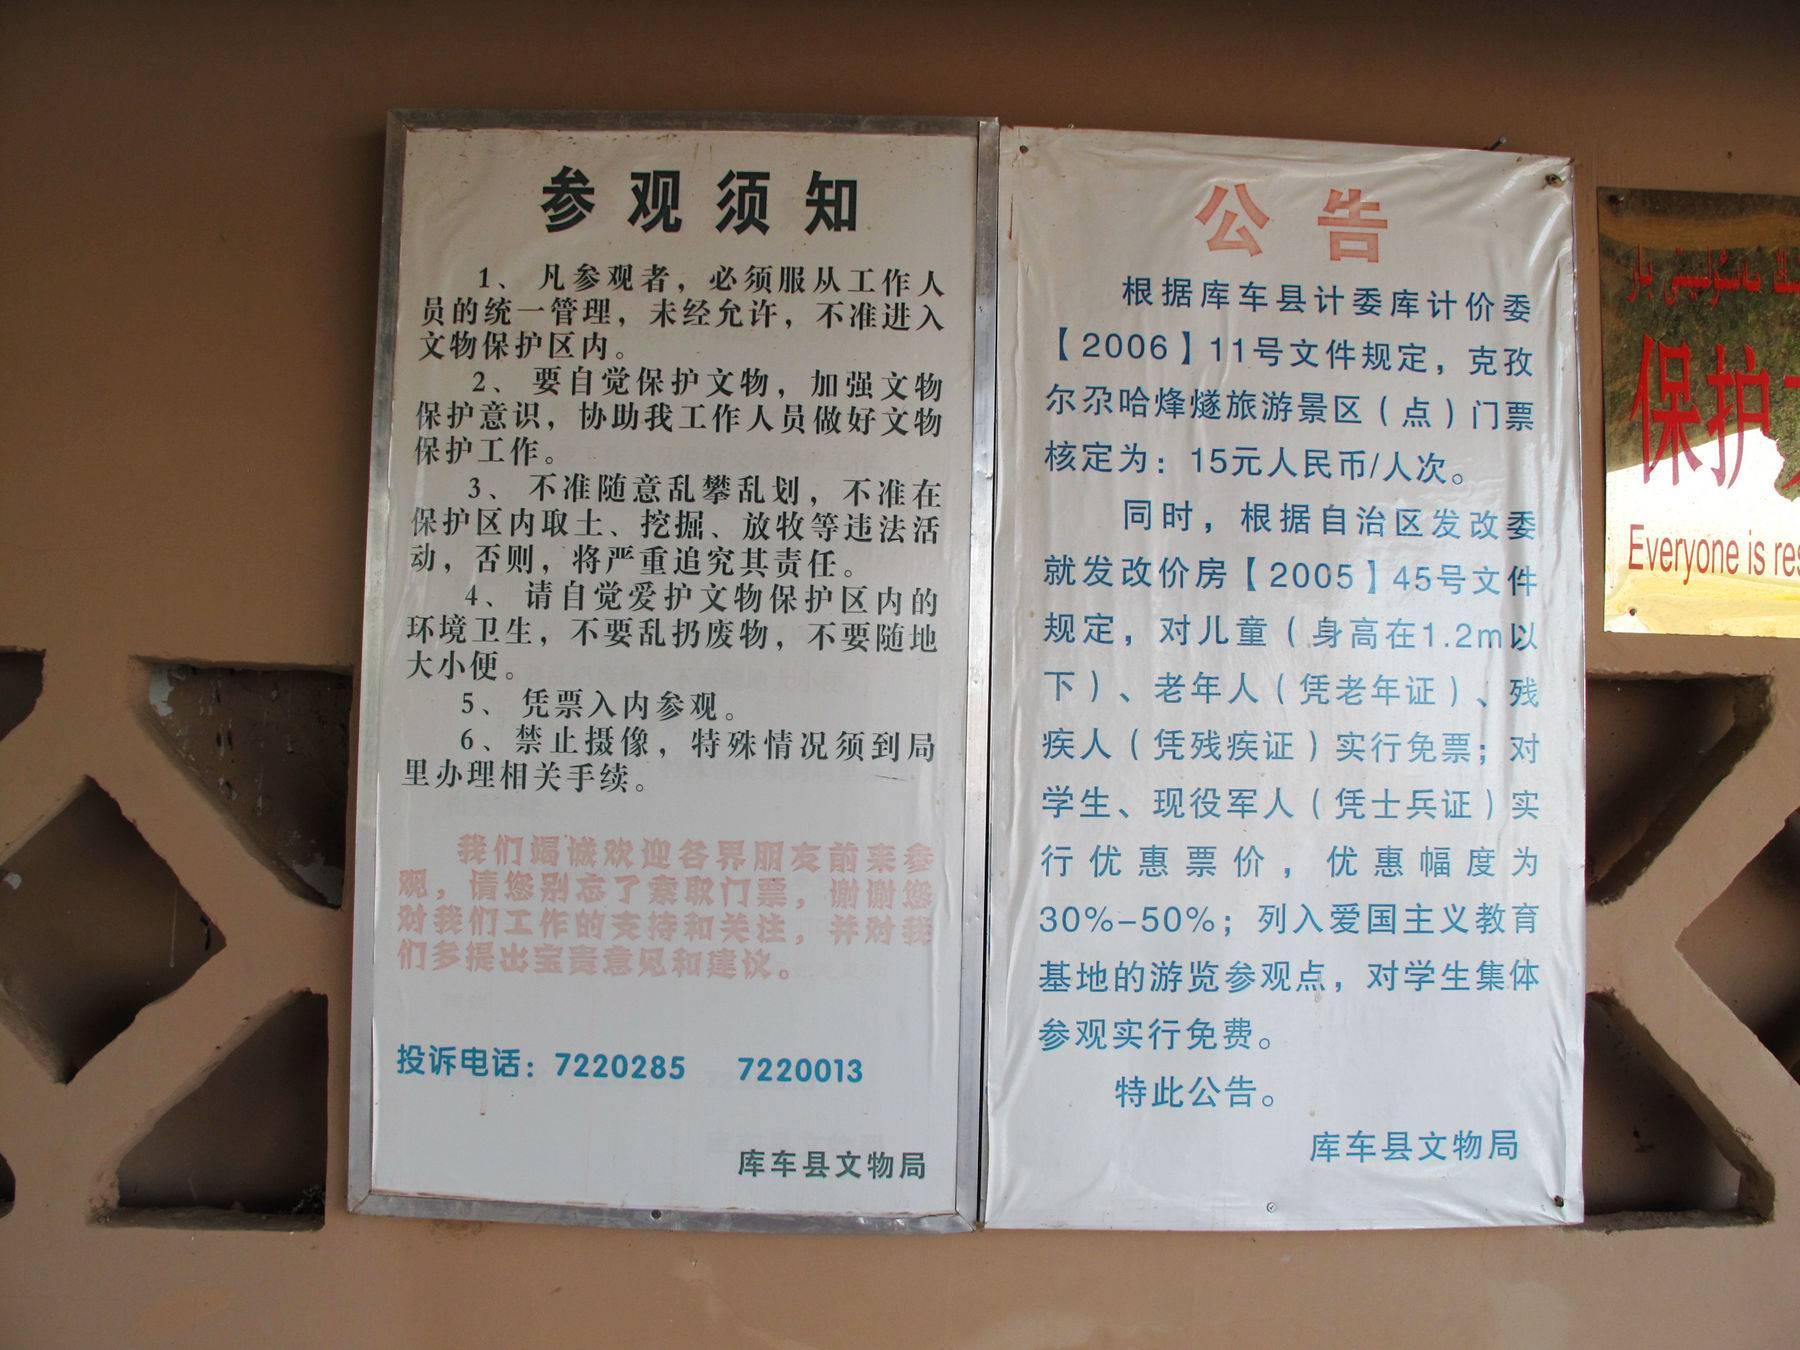 参观须知
1、凡参观者，必须服从工作人
员的统一管理，未经允许，不准进入
文物保护区内。
2、要自觉保护文物，加强文物
保护意识，协助我工作人员做好文物
保护工作。
3、不准随意乱攀乱划，不准在
保护区内取土、挖掘、放牧等违法活
动，否则，将严重追究其责任。
4、请自觉爱护文物保护区内的
环境卫生，不要乱扔废物，不要随地
大小便。
5、凭票入内参观。
6、禁止摄像，特殊情况须到局
里办理相关手续。
我们竭诚欢迎各界朋友前来参
观，请您别忘了索取门票，谢谢您
对我们工作的支持和关注，并对我
们多提出宝贵意见和建议。
投诉电话：7220285 7220013
库车县文物局
公告
根据库车县计委库计价委
【2006】11号文件规定，克孜
尔尕哈烽燧旅游景区（点）门票
核定为：15元人民币/人次。
同时，根据自治区发改委
就发改价房【2005】45号文件
规定，对儿童（身高在1.2m以
下）、老年人（凭老年证）、残
疾人（凭残疾证）实行免票；对
学生、现役军人（凭士兵证）实
行优惠票价，优惠幅度为
30%-50%；列入爱国主义教育
基地的游览参观点，对学生集体
参观实行免费。
特此公告。
库车县文物局
保护
Everyone is